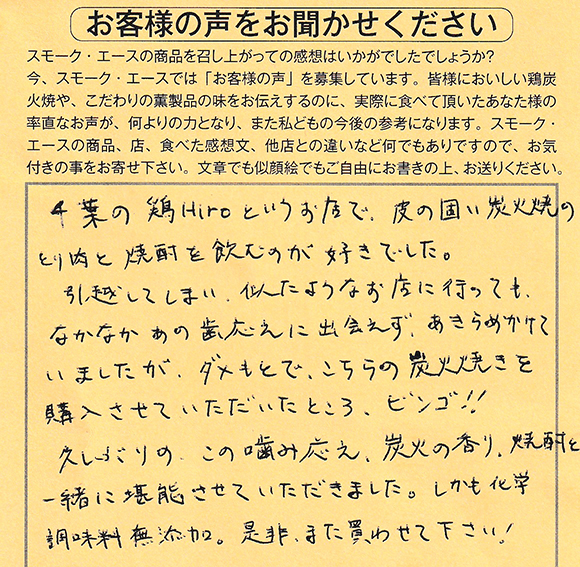 お客様の声をお聞かせください
スモーク・エースの商品を召し上がっての感想はいかがでしたでしょうか?
今、スモーク・エースでは「お客様の声」を募集しています。皆様においしい鶏炭
火焼や、こだわりの薫製品の味をお伝えするのに、実際に食べて頂いたあなた様の
率直なお声が、何よりの力となり、また私どもの今後の参考になります。スモーク・
エースの商品、店、食べた感想文、他店との違いなど何でもありですので、お気
付きの事をお寄せ下さい。文章でも似顔絵でもご自由にお書きの上、お送りください。
千葉の鶏Hiroというお店で、皮の固い炭火焼の
とり肉と焼酎を飲むのが好きでした。
引越してしまい、似たようなお店に行っても、
なかなかあの歯応えに出会えず、あきらめかけて
いましたが、ダメもとで、こちらの炭火焼きを
購入させていただいたところ、ビンゴ!!
久しぶりの、この噛み応え、炭火の香り、焼酎と
一緒に堪能させていただきました。しかも化学
調味料無添加。是非、また買わせて下さい!